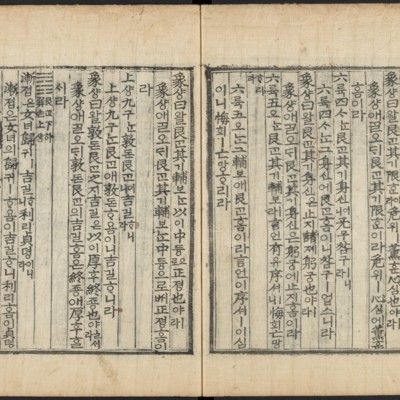 象샹曰왈艮간其기限한이라危위ㅣ薰훈心심也야ㅣ라
象샹애ᄀᆞᆯ오ᄃᆡ艮간其기限한이라危위ㅣ心심에薰훈
홈이라
六륙四ᄉᆞᄂᆞᆫ艮간其기身신이니无무咎구ᄒᆞ니라
六륙四ᄉᆞᄂᆞᆫ그身신에艮간홈이니咎구ㅣ업스니라
象샹曰왈艮간其기身신은止지諸져躬궁也야ㅣ라
象샹애ᄀᆞᆯ오ᄃᆡ艮간其기身신은躬궁에止지홈이라
六륙五오ᄂᆞᆫ艮간其기輔보ㅣ라言언有유序셔ㅣ니悔회亡망ᄒᆞ리라
六륙五오ᄂᆞᆫ그輔보애艮간홈이라言언이序셔ㅣ이심
이니悔회ㅣ亡망ᄒᆞ리라
象샹曰왈艮간其기輔보ᄂᆞᆫ以이中듕으로正졍也야ㅣ라
象샹애ᄀᆞᆯ오ᄃᆡ艮간其기輔보ᄂᆞᆫ中듕으로ᄡᅥ正졍홈이
라
上샹九구ᄂᆞᆫ敦돈艮간이니吉길ᄒᆞ니라
上샹九구ᄂᆞᆫ艮간애敦돈홈이니吉길ᄒᆞ니라
象샹曰왈敦돈艮간之지吉길은以이厚후終죵也야ㅣ라
象샹애ᄀᆞᆯ오ᄃᆡ敦돈艮간의吉길홈은終죵애厚후홈으로
ᄡᅥ라
艮下巽上
漸졈은女녀歸귀ㅣ吉길ᄒᆞ니利리貞뎡ᄒᆞ니라
漸졈은女녀의歸귀ㅣ吉길ᄒᆞ니利리홈이貞뎡